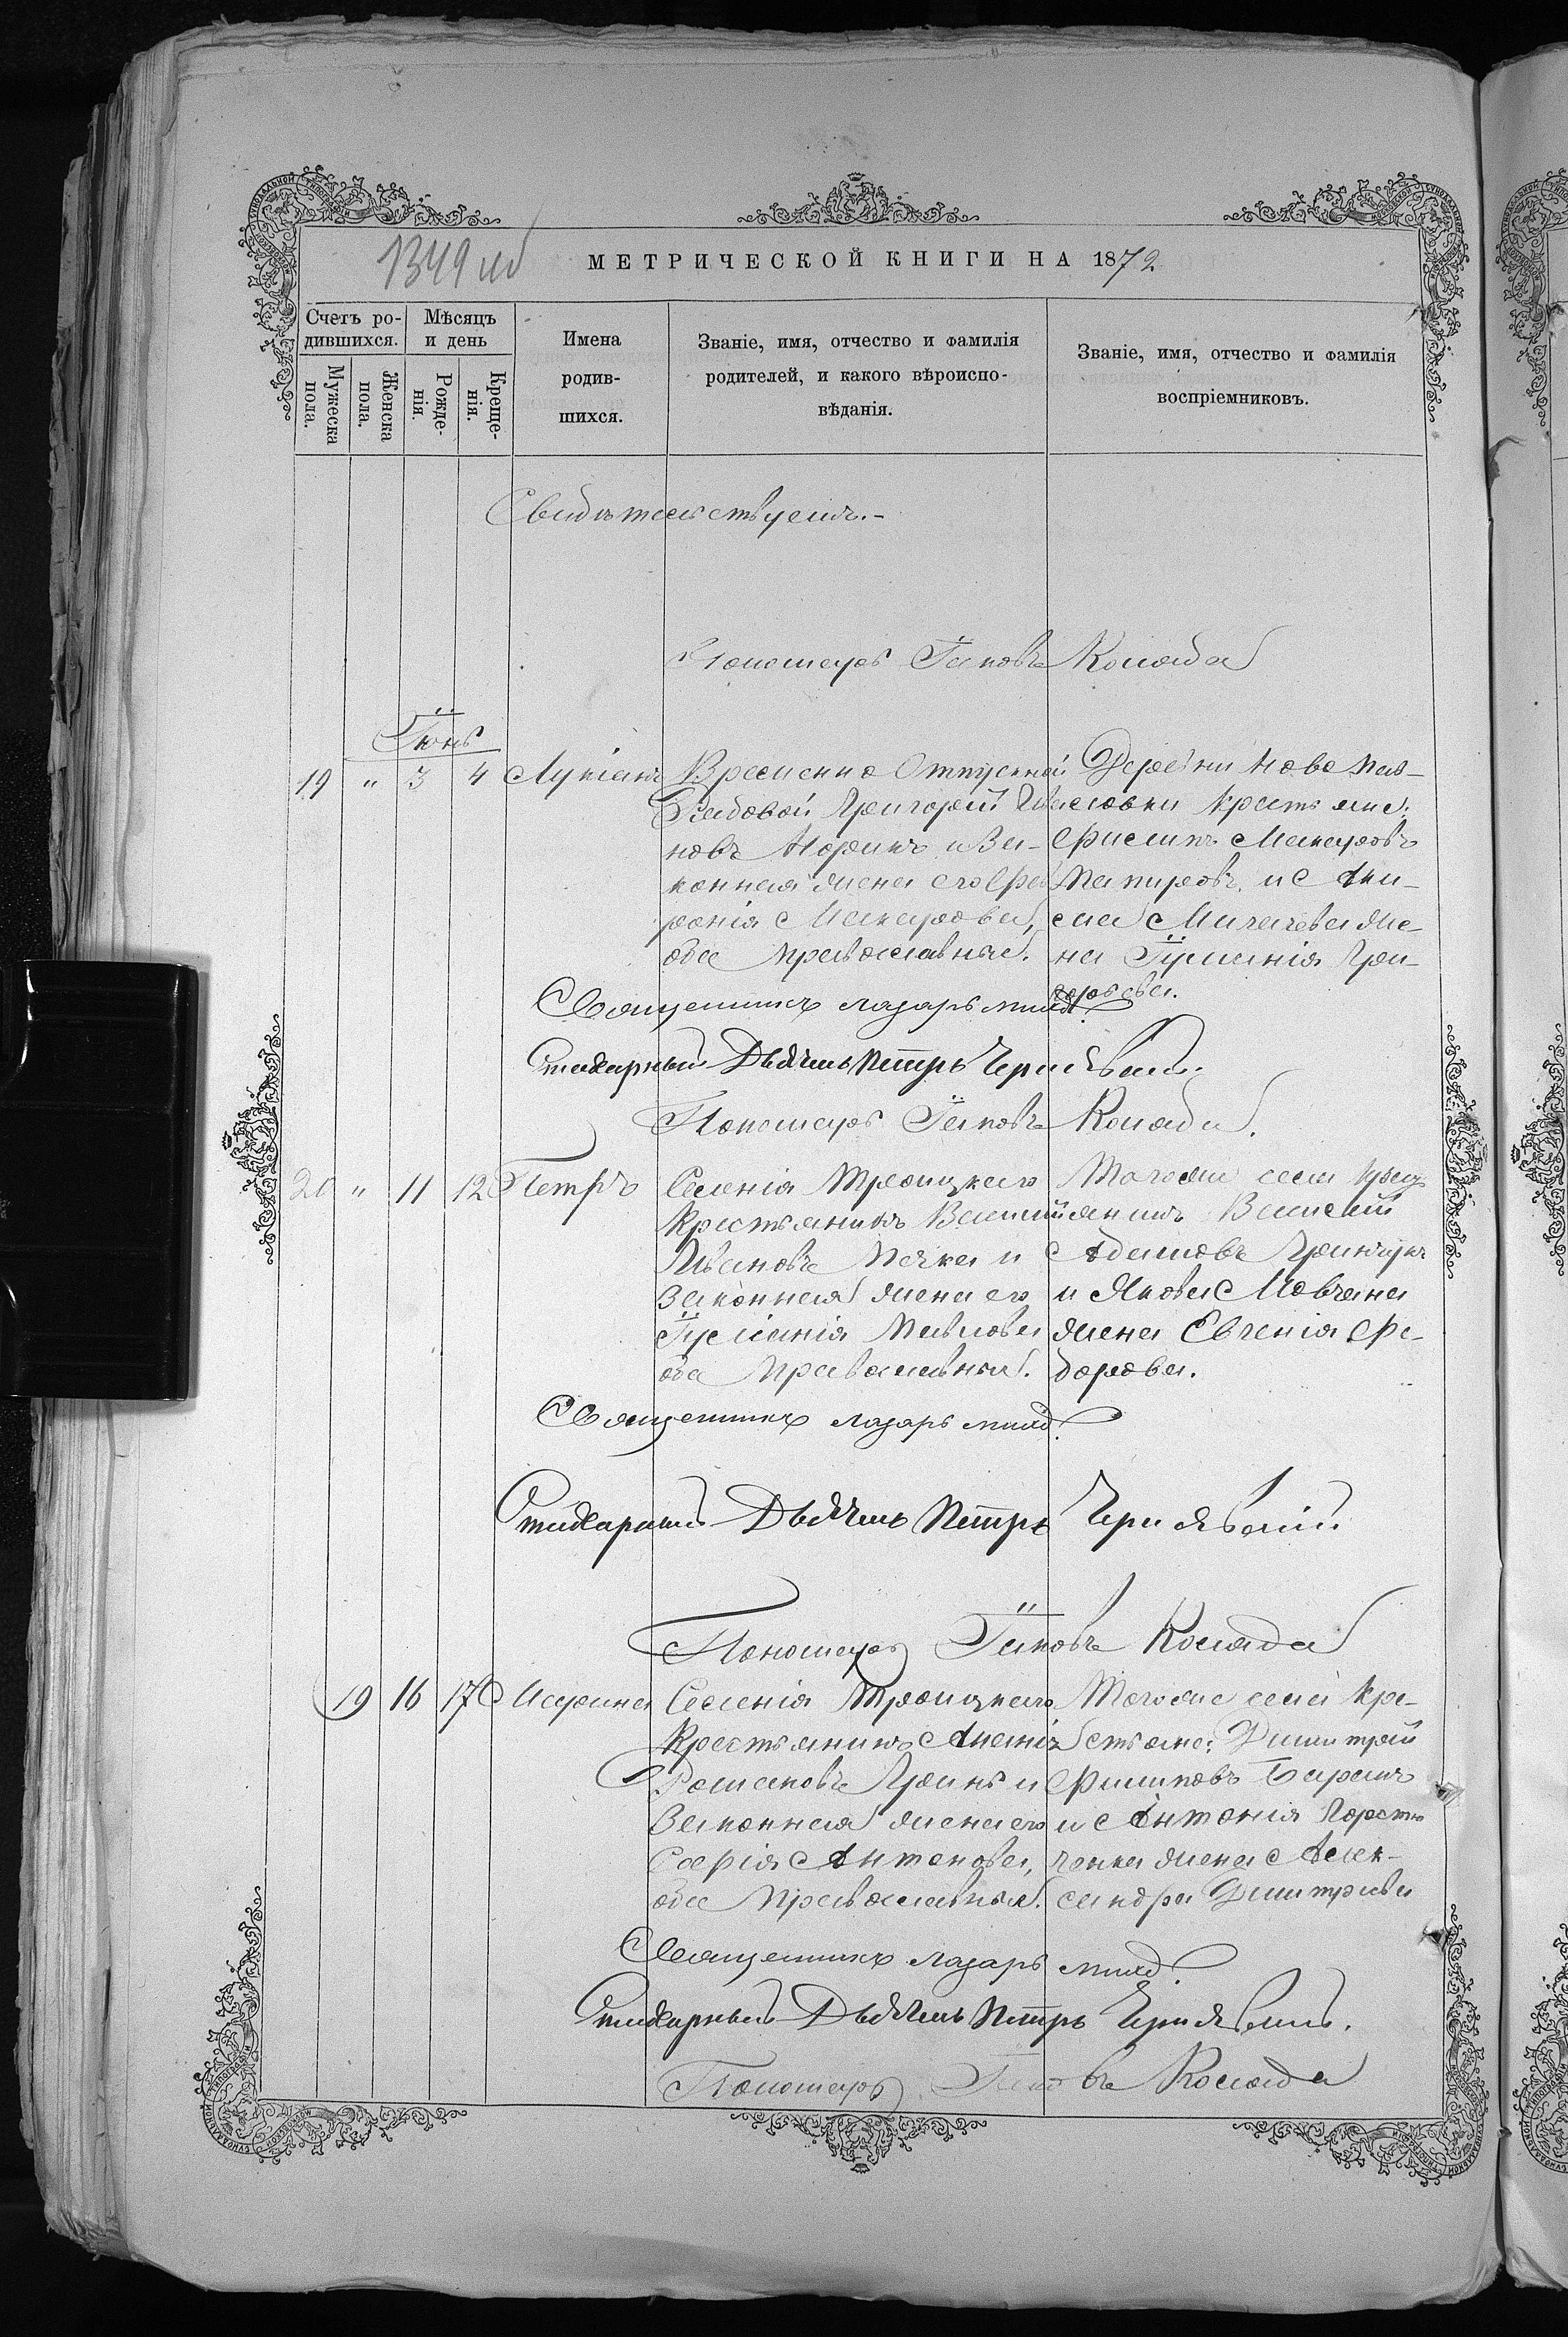 1349 об
МЕТРИЧЕСКОЙ КНИГИ НА 1872
Счетъ ро-
дившихся.
Мужеска
пола.
Женска
пола.
Мѣсяцъ
и день
Рожде-
нія.
Креще-
нія.
Имена
родив-
шихся.
Званіе, имя, отчество и фамилія
родителей, и какого вѣроиспо-
вѣданія.
Званіе, имя, отчество и фамилія
воспріемниковъ.
Свидѣтельствуемъ.-
Пономарь Іяковъ Коляда
Іюнь
19 " 3 4 Лукіанъ
Временно Отпускной
Рядовой Григорій Ива
новъ и За-
конная жена его Фев
ронія Макарова,
оба православные.
Деревни Ново Пав-
ловки крестьяни:
Филипъ Макаровъ
и Аки-
ма жe-
на Іуліанія Гри-
горьева.
Священникъ Лазарь
Стихарный Дьячекъ Петръ Чернявскій.
Пономарь Іяковъ Коляда.
20 " 11 12 Петръ
Селенія Троицкаго
Крестьянинъ Василій
Ивановъ Пачка и
Законная жена его
Іуліанія Павлова
оба Православныя.
Тогоже села крест
янинъ Василій
Адамовъ
и Якова Мовчана
жена Евгенія Фе-
дорова.
Священникъ Лазарь
Стихарный Дьячекъ Петръ Чернявскій
Пономарь Іяковъ Коляда
19 16 17 Марина
Селенія Троицкаго
Крестьянинъ Ананія
Романовъ Гринь и
Законная жена его
Софія Антонова,
оба православныя.
Тогоже села кре-
стьяне: Димитрій
Филиповъ Баранъ
и Антонія
жена Алек-
сандра Димитріева
Священникъ Лазарь
Стихарный Дьячекъ Петръ Чернявскій.
Пономарь Іяковъ Коляда